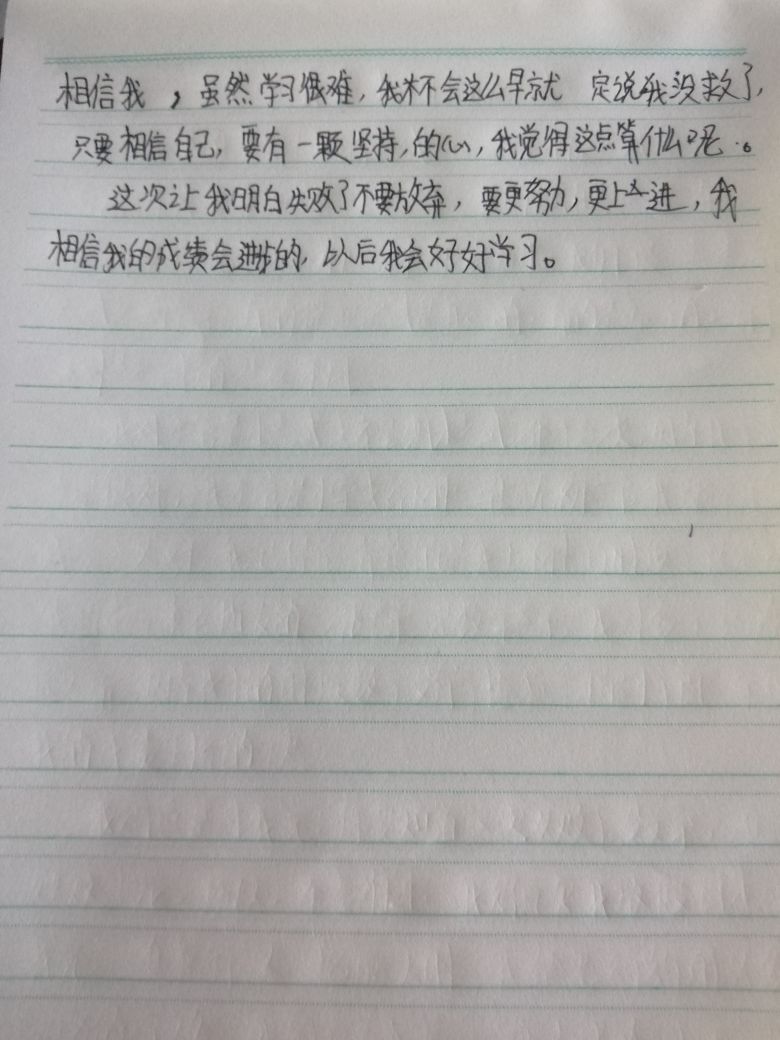 相信我，虽然学习很难，我不会这么早就 定说我没救了，
只要相信自己，要有一颗坚持，的心，我觉得这点算什么呢。
这次让我明白失败了不要放弃，要更努力，更上进，我
相信我的成绩会进步的，以后我会好好学习。